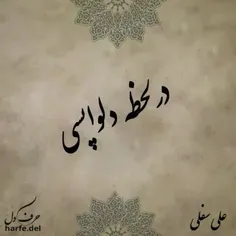 در لحظه دلواپسی
علی سفلی
حرف دل
harfe.del